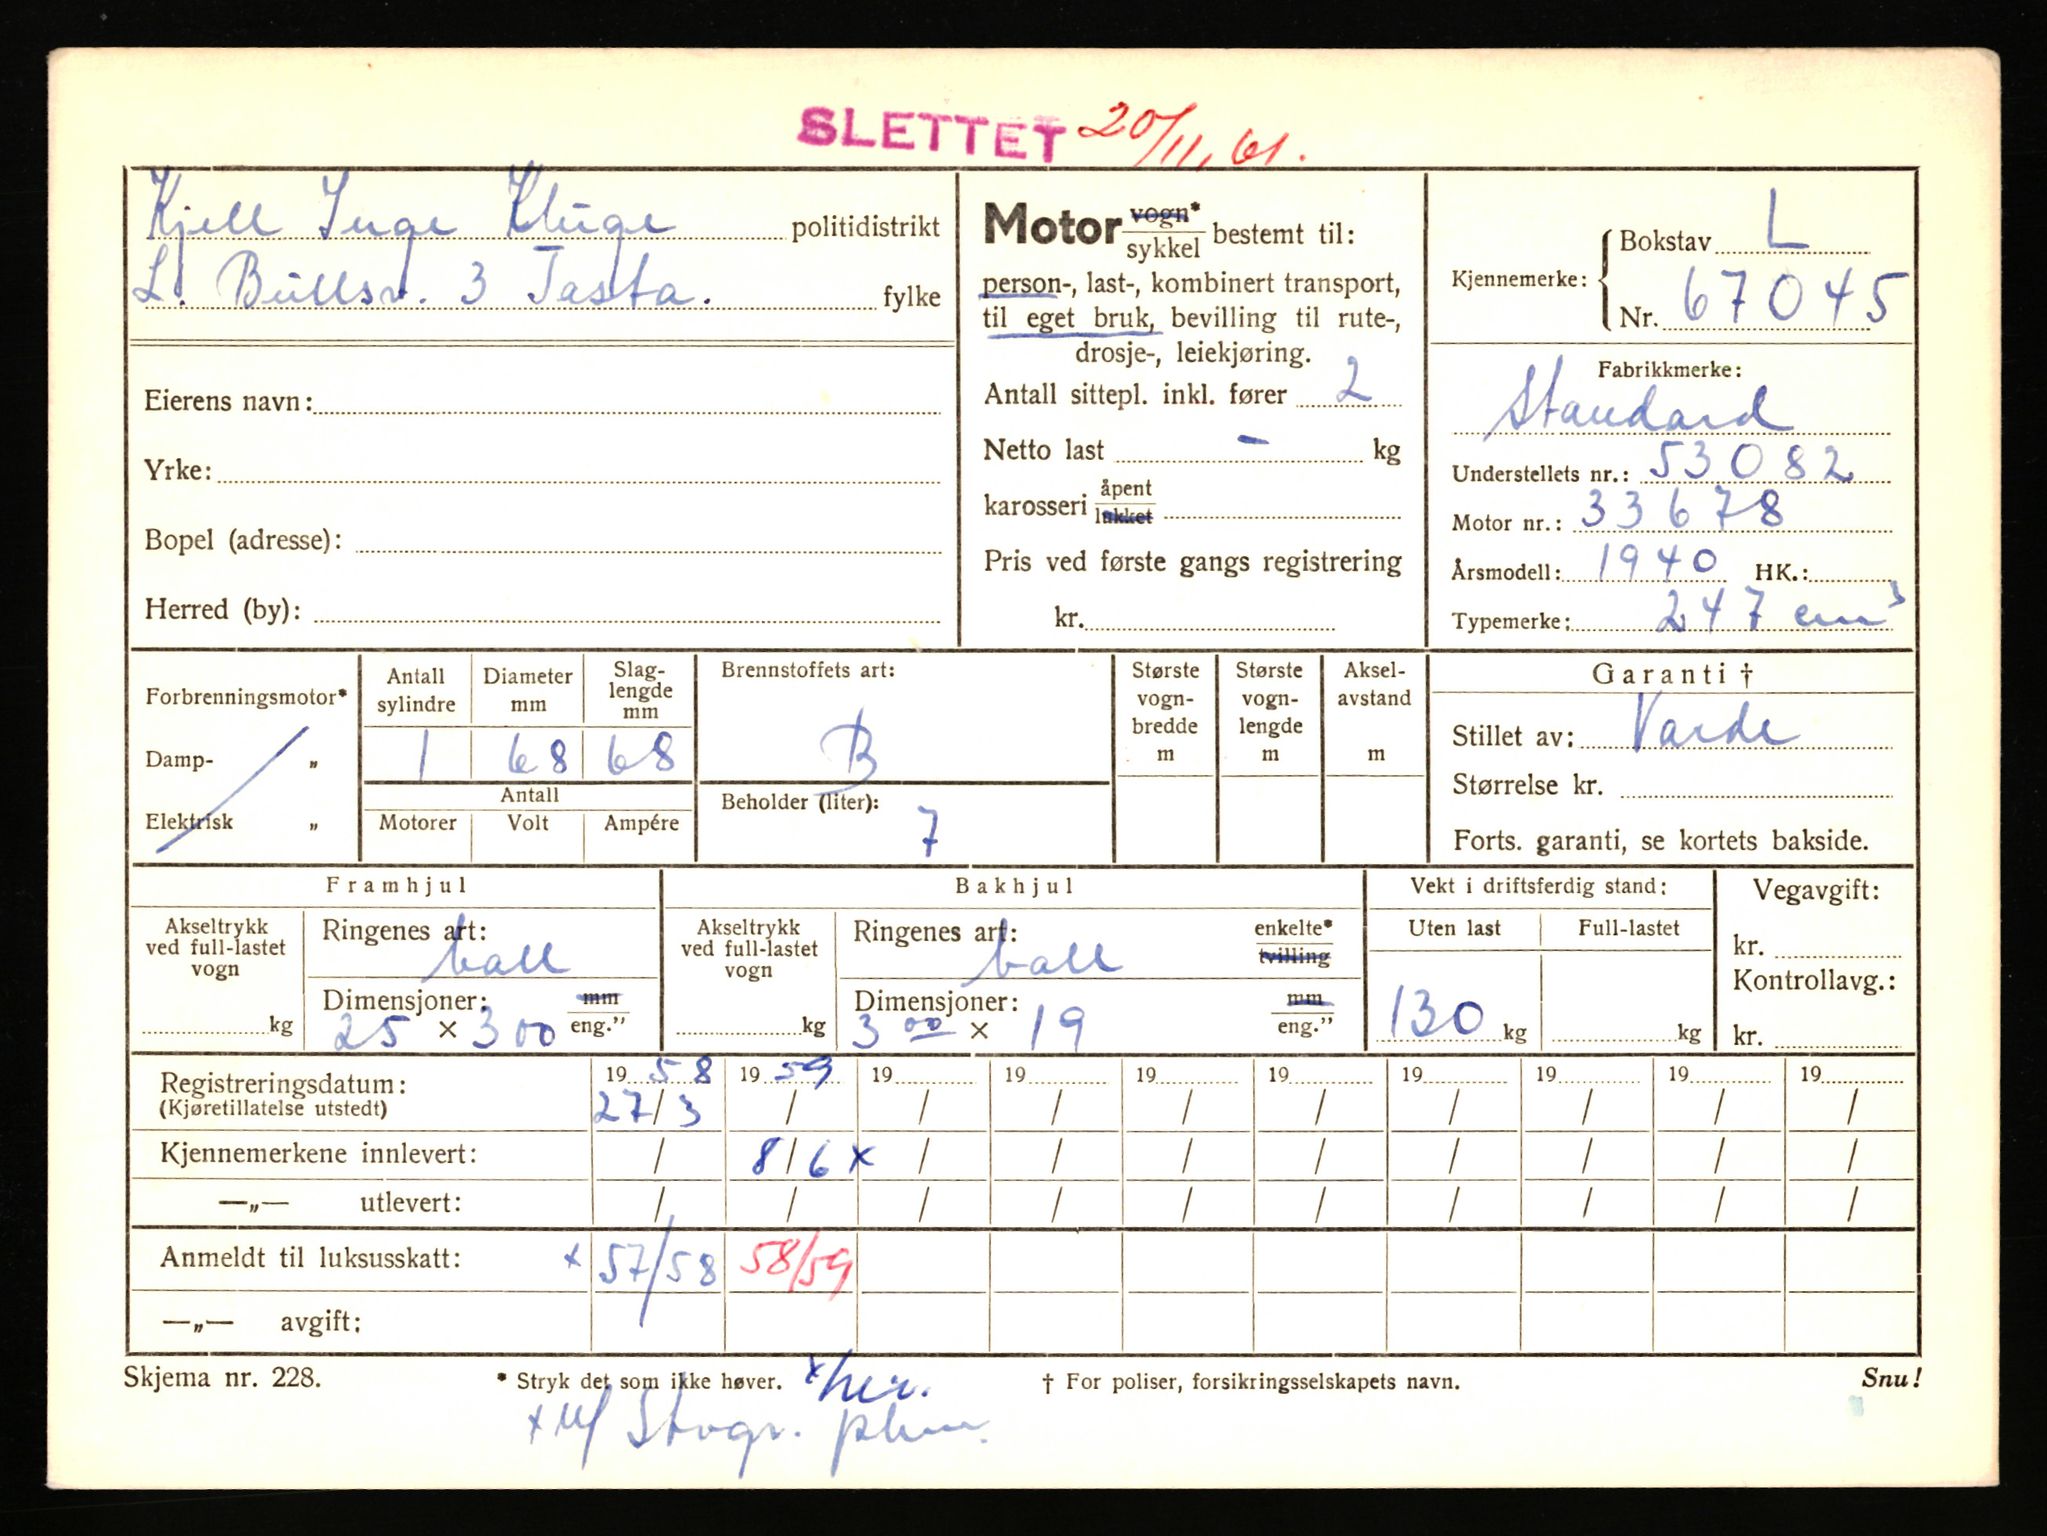 SLETTET 20/11, 61.
Kjell Inge Kluge politidistrikt
L. Bullsv. 3 Tasta. fylke
Eierens navn:
Yrke:
Bopel (adresse):
Herred (by):
Motor vogn* / sykkel bestemt til:
person-, last-, kombinert transport,
til eget bruk, bevilling til rute-,
drosje-, leiekjøring.
Antall sittepl. inkl. fører 2
Netto last - kg
karosseri åpent / lukket
Pris ved første gangs registrering
kr.
Kjennemerke: Bokstav L
Nr. 67045
Fabrikkmerke:
Standard
Understellets nr.: 53082
Motor nr.: 33678
Årsmodell: 1940 HK.:
Typemerke: 247 cm³
Forbrenningsmotor*
Damp- „
Elektrisk „
Antall sylindre
Diameter mm
Slag-lengde mm
1 68 68
Antall
Motorer Volt Ampére
Brennstoffets art:
B
Beholder (liter):
7
Største vogn-bredde m
Største vogn-lengde m
Aksel-avstand m
Garanti †
Stillet av: Varde
Størrelse kr.
Forts. garanti, se kortets bakside.
Framhjul
Akseltrykk ved full-lastet vogn
kg
Ringenes art:
ball
Dimensjoner: mm / eng.”
25 × 3 00
Bakhjul
Akseltrykk ved full-lastet vogn
kg
Ringenes art: enkelte* / tvilling
ball
Dimensjoner: mm / eng.”
3 00 × 19
Vekt i driftsferdig stand:
Uten last Full-lastet
130 kg kg
Vegavgift:
kr.
Kontrollavg.:
kr.
Registreringsdatum: 1958 1959 19 19 19 19 19 19 19 19
(Kjøretillatelse utstedt) 27/3 / / / / / / / / /
Kjennemerkene innlevert: / 8/6 x / / / / / / / /
—„— utlevert: / / / / / / / / / /
Anmeldt til luksusskatt: x 57/58 58/59
—„— avgift:
Skjema nr. 228. * Stryk det som ikke høver. x her. † For poliser, forsikringsselskapets navn. Snu!